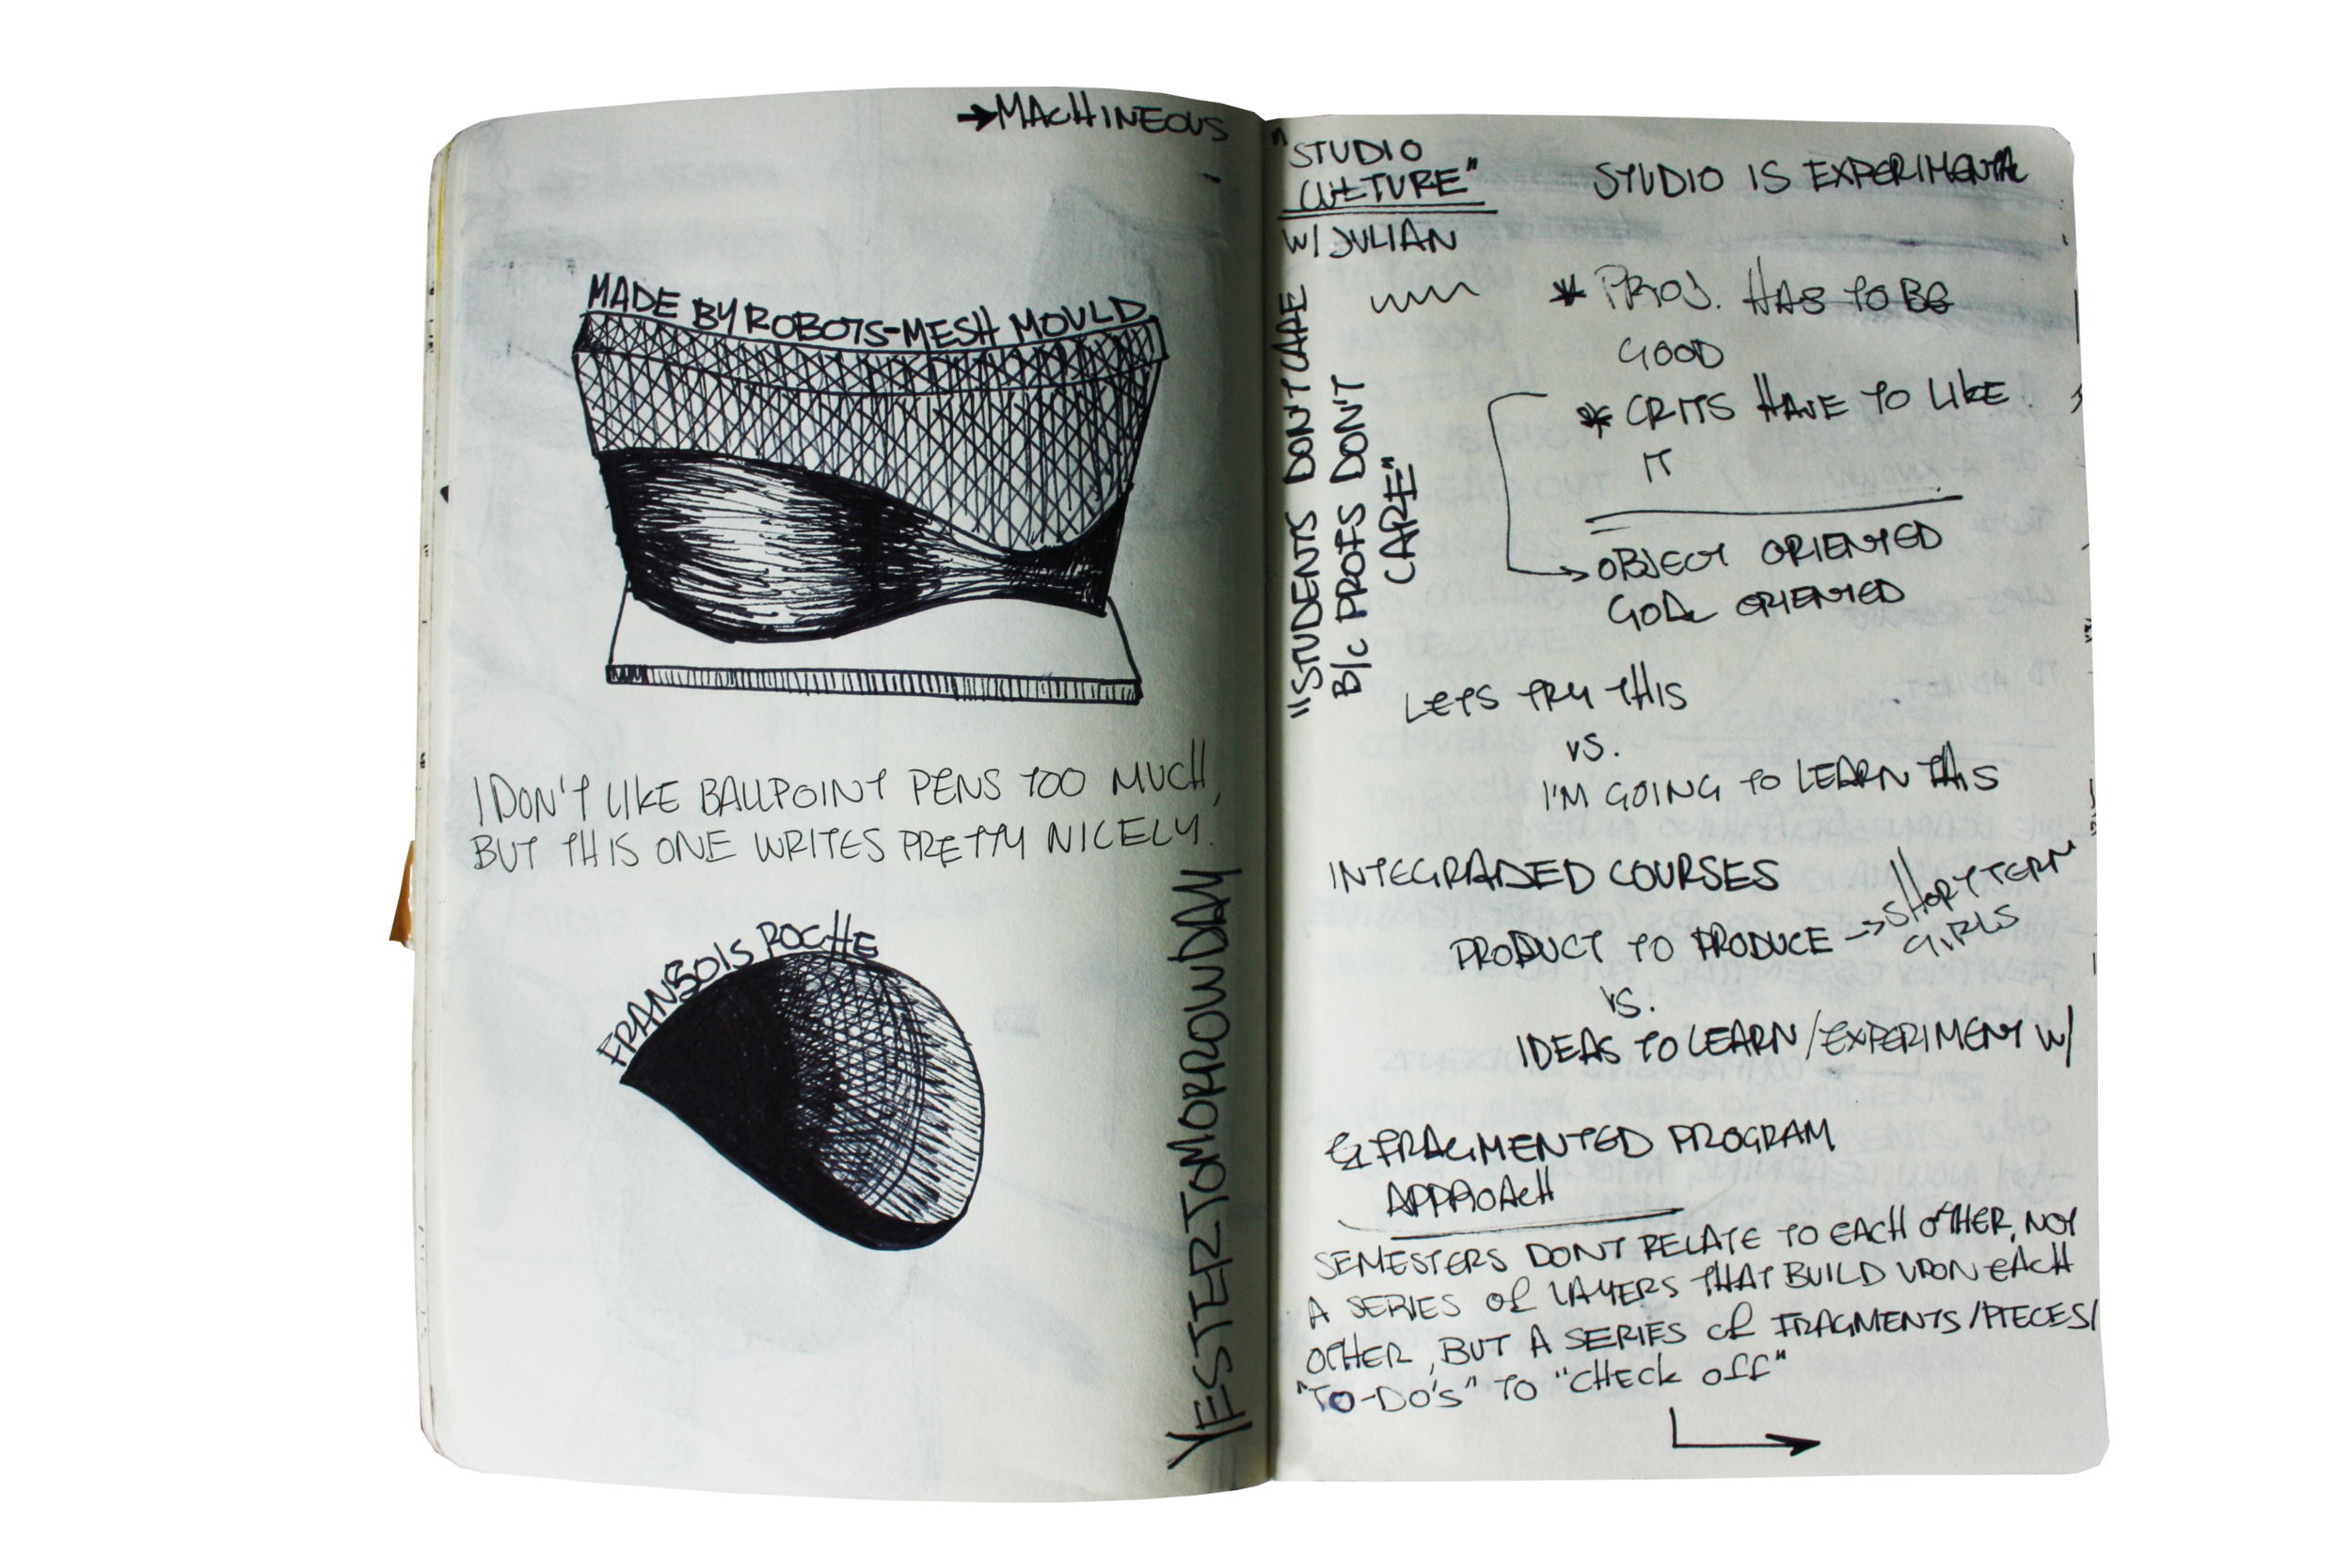 →MACHINEOUS
MADE BY ROBOTS-MESH MOULD
I DON'T LIKE BALLPOINT PENS TOO MUCH,
BUT THIS ONE WRITES PRETTY NICELY.
FRANSOIS ROCHE
YESTERTOMORROWDAY
"STUDIO
CULTURE"
W/ JULIAN
"STUDENTS DON'T CARE
B/C PROFS DON'T
CARE"
STUDIO IS EXPERIMENTAL
* PROJ. HAS TO BE
GOOD
* CRITS HAVE TO LIKE
IT
→OBJECT ORIENTED
GOAL ORIENTED
LETS TRY THIS
VS.
I'M GOING TO LEARN THIS
INTEGRADED COURSES
PRODUCT TO PRODUCE → SHORT TERM
GIRLS
VS.
IDEAS TO LEARN/EXPERIMENT W/
& FRAGMENTED PROGRAM
APPROACH
SEMESTERS DONT RELATE TO EACH OTHER, NOT
A SERIES OF LAYERS THAT BUILD UPON EACH
OTHER, BUT A SERIES OF FRAGMENTS/PIECES/
"TO-DO'S" TO "CHECK OFF"